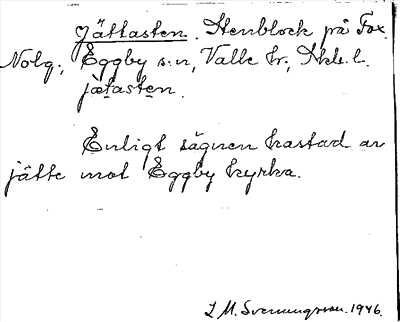 Jättasten. Stenblock på Fox
Nolg., Eggby s:n, Valle hr, Skb.l.
jætasten.
Enligt sägnen kastad av
jätte mot Eggby kyrka.
L. M. Svenungsson. 1946.